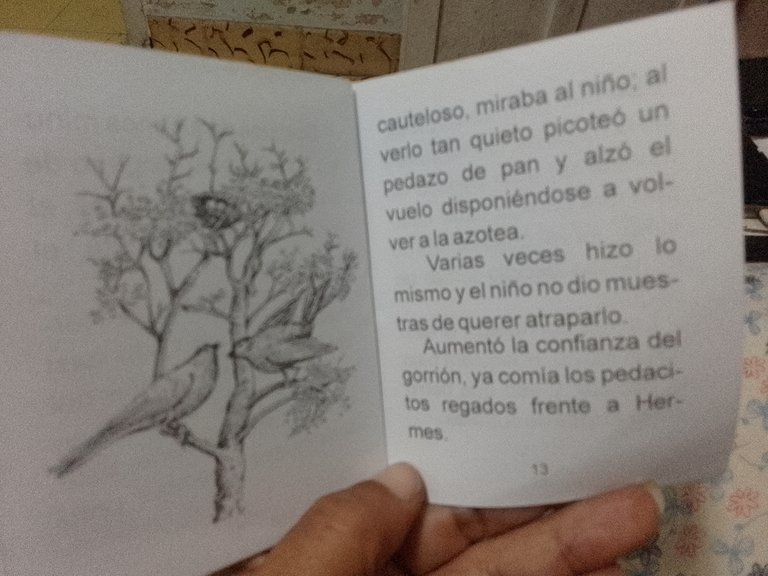 cauteloso, miraba al niño; al
verlo tan quieto picoteó un
pedazo de pan y alzó el
vuelo disponiéndose a vol-
ver a la azotea.
Varias veces hizo lo
mismo y el niño no dio mues-
tras de querer atraparlo.
Aumentó la confianza del
gorrión, ya comía los pedaci-
tos regados frente a Her-
mes.
13